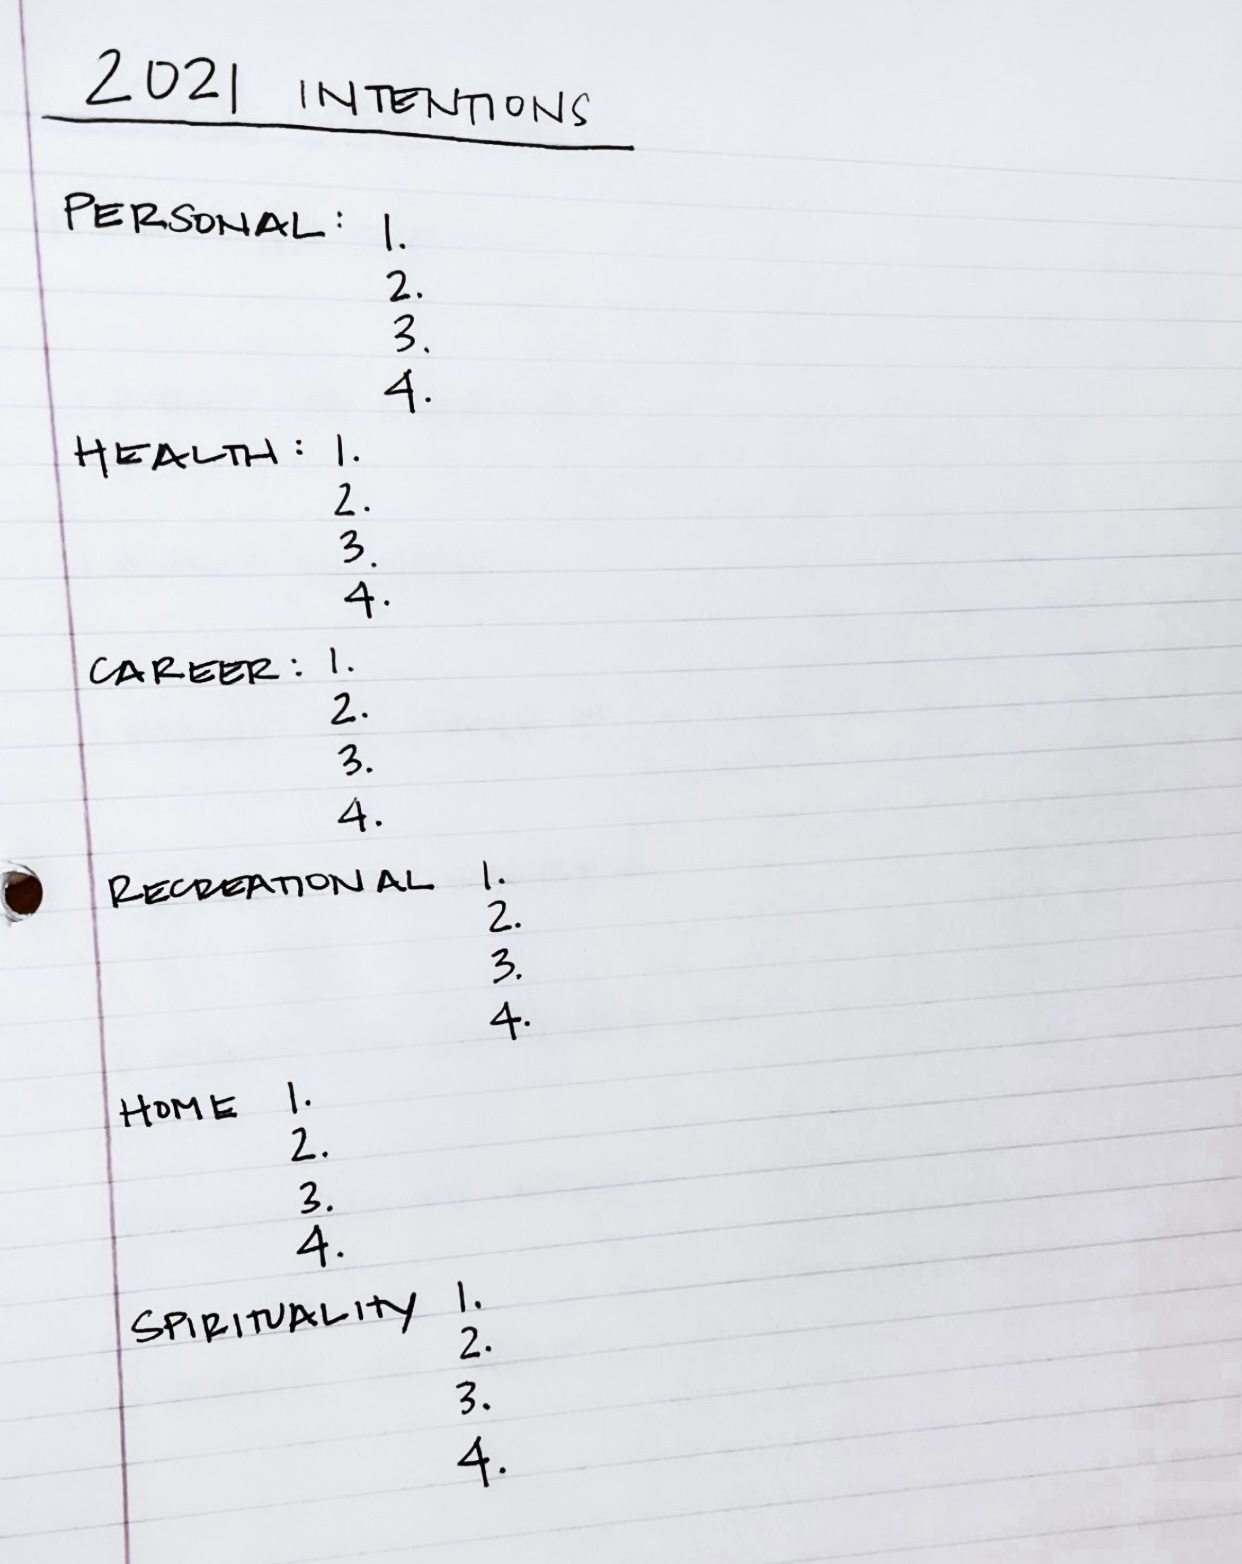 2021 INTENTIONS
PERSONAL: 1.
2.
3.
4.
HEALTH: 1.
2.
3.
4.
CAREER: 1.
2.
3.
4.
RECREATIONAL 1.
2.
3.
4.
HOME 1.
2.
3.
4.
SPIRITUALITY 1.
2.
3.
4.